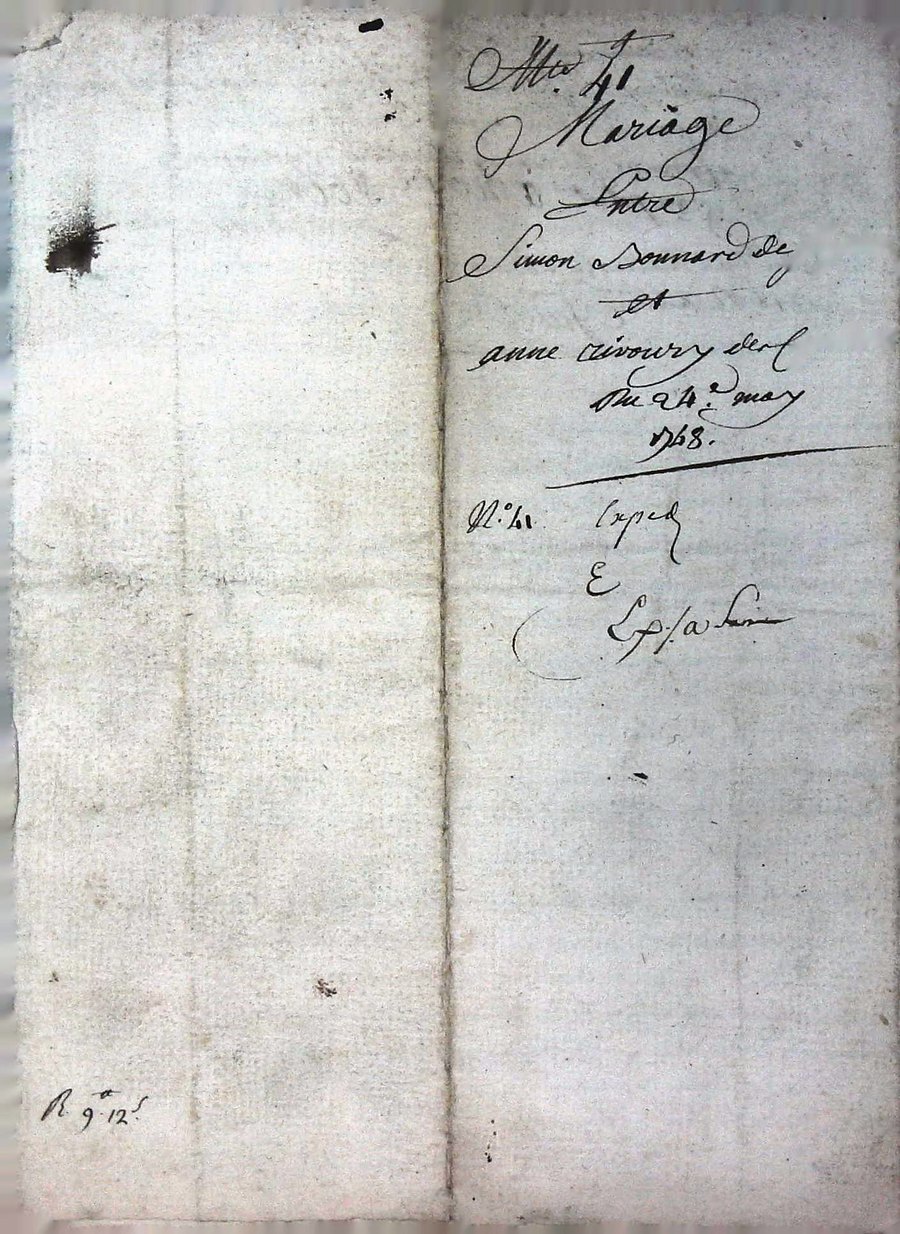 41
Mariage
Entre
Simon Bonnard de
et
anne rivoury
Du 24.e may
1768.
N.o 41 Exped
E
Exp.
R 9.tt 12.s